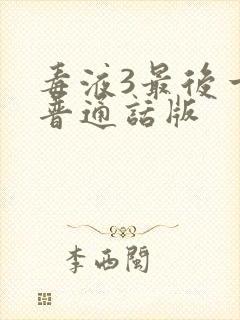 毒液3最後一
普通話版
李西閩